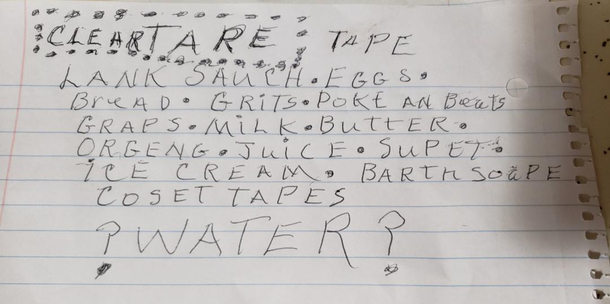 CLEAR TAPE TAPE
LANK SAUCH. EGGS.
BreAD. GRITS. POKE AN Beats
GRAPS. MiLK. BUTTER.
ORGENG. JUiCE. SUPET.
ICE CREAM. BARTH SOAPE
COSET TAPES
?WATER?